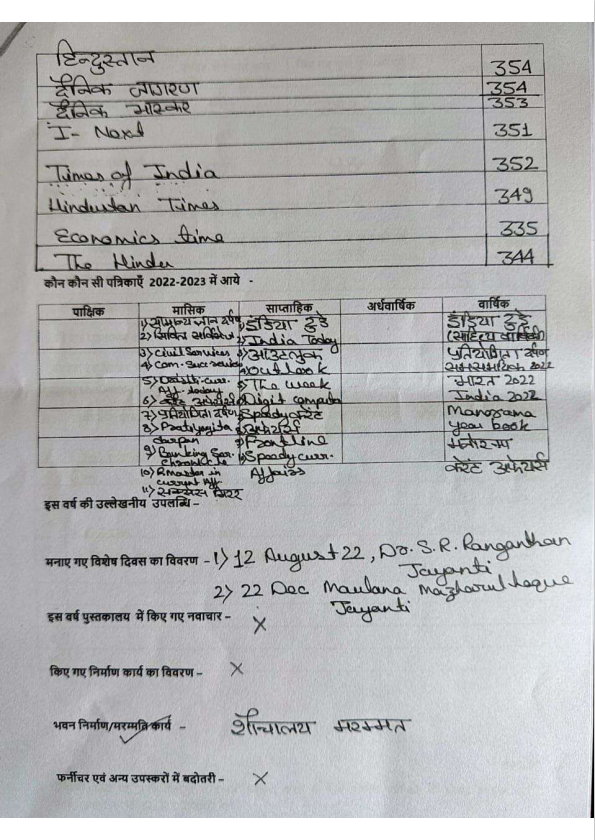 हिन्दुस्तान 354
दैनिक जागरण 354
दैनिक भास्कर 353
I- Next 351
Times of India 352
Hindustan Times 349
Economics time 335
The Hindu 344
कौन कौन सी पत्रिकाएँ 2022-2023 में आये -
पाक्षिक मासिक साप्ताहिक अर्धवार्षिक वार्षिक
1) सामान्य ज्ञान दर्पण इंडिया टुडे इंडिया टुडे
2) India Today (साहित्य वार्षिकी)
3) Civil Services आउटलुक प्रतियोगिता दर्पण
4) Com. Success outlook 2022
5) curr. The week भारत 2022
Aff. today
6) Digit computer India 2022
7) प्रतियोगिता दर्पण Manorama
8) Pratiyogita year book
darpan Frontline मनोरमा
9) Banking Ser. Speedy curr. करेंट अफेयर्स
chronicle Affairs
10)
current Aff.
11)
इस वर्ष की उल्लेखनीय उपलब्धि –
मनाए गए विशेष दिवस का विवरण - 1) 12 August 22, Dr. S. R. Ranganthan
Jayanti
2) 22 Dec Maulana Mazharul Haque
Jayanti
इस वर्ष पुस्तकालय में किए गए नवाचार – X
किए गए निर्माण कार्य का विवरण – X
भवन निर्माण/मरम्मति कार्य - शौचालय मरम्मत
फर्नीचर एवं अन्य उपस्करों में बदोतरी – X